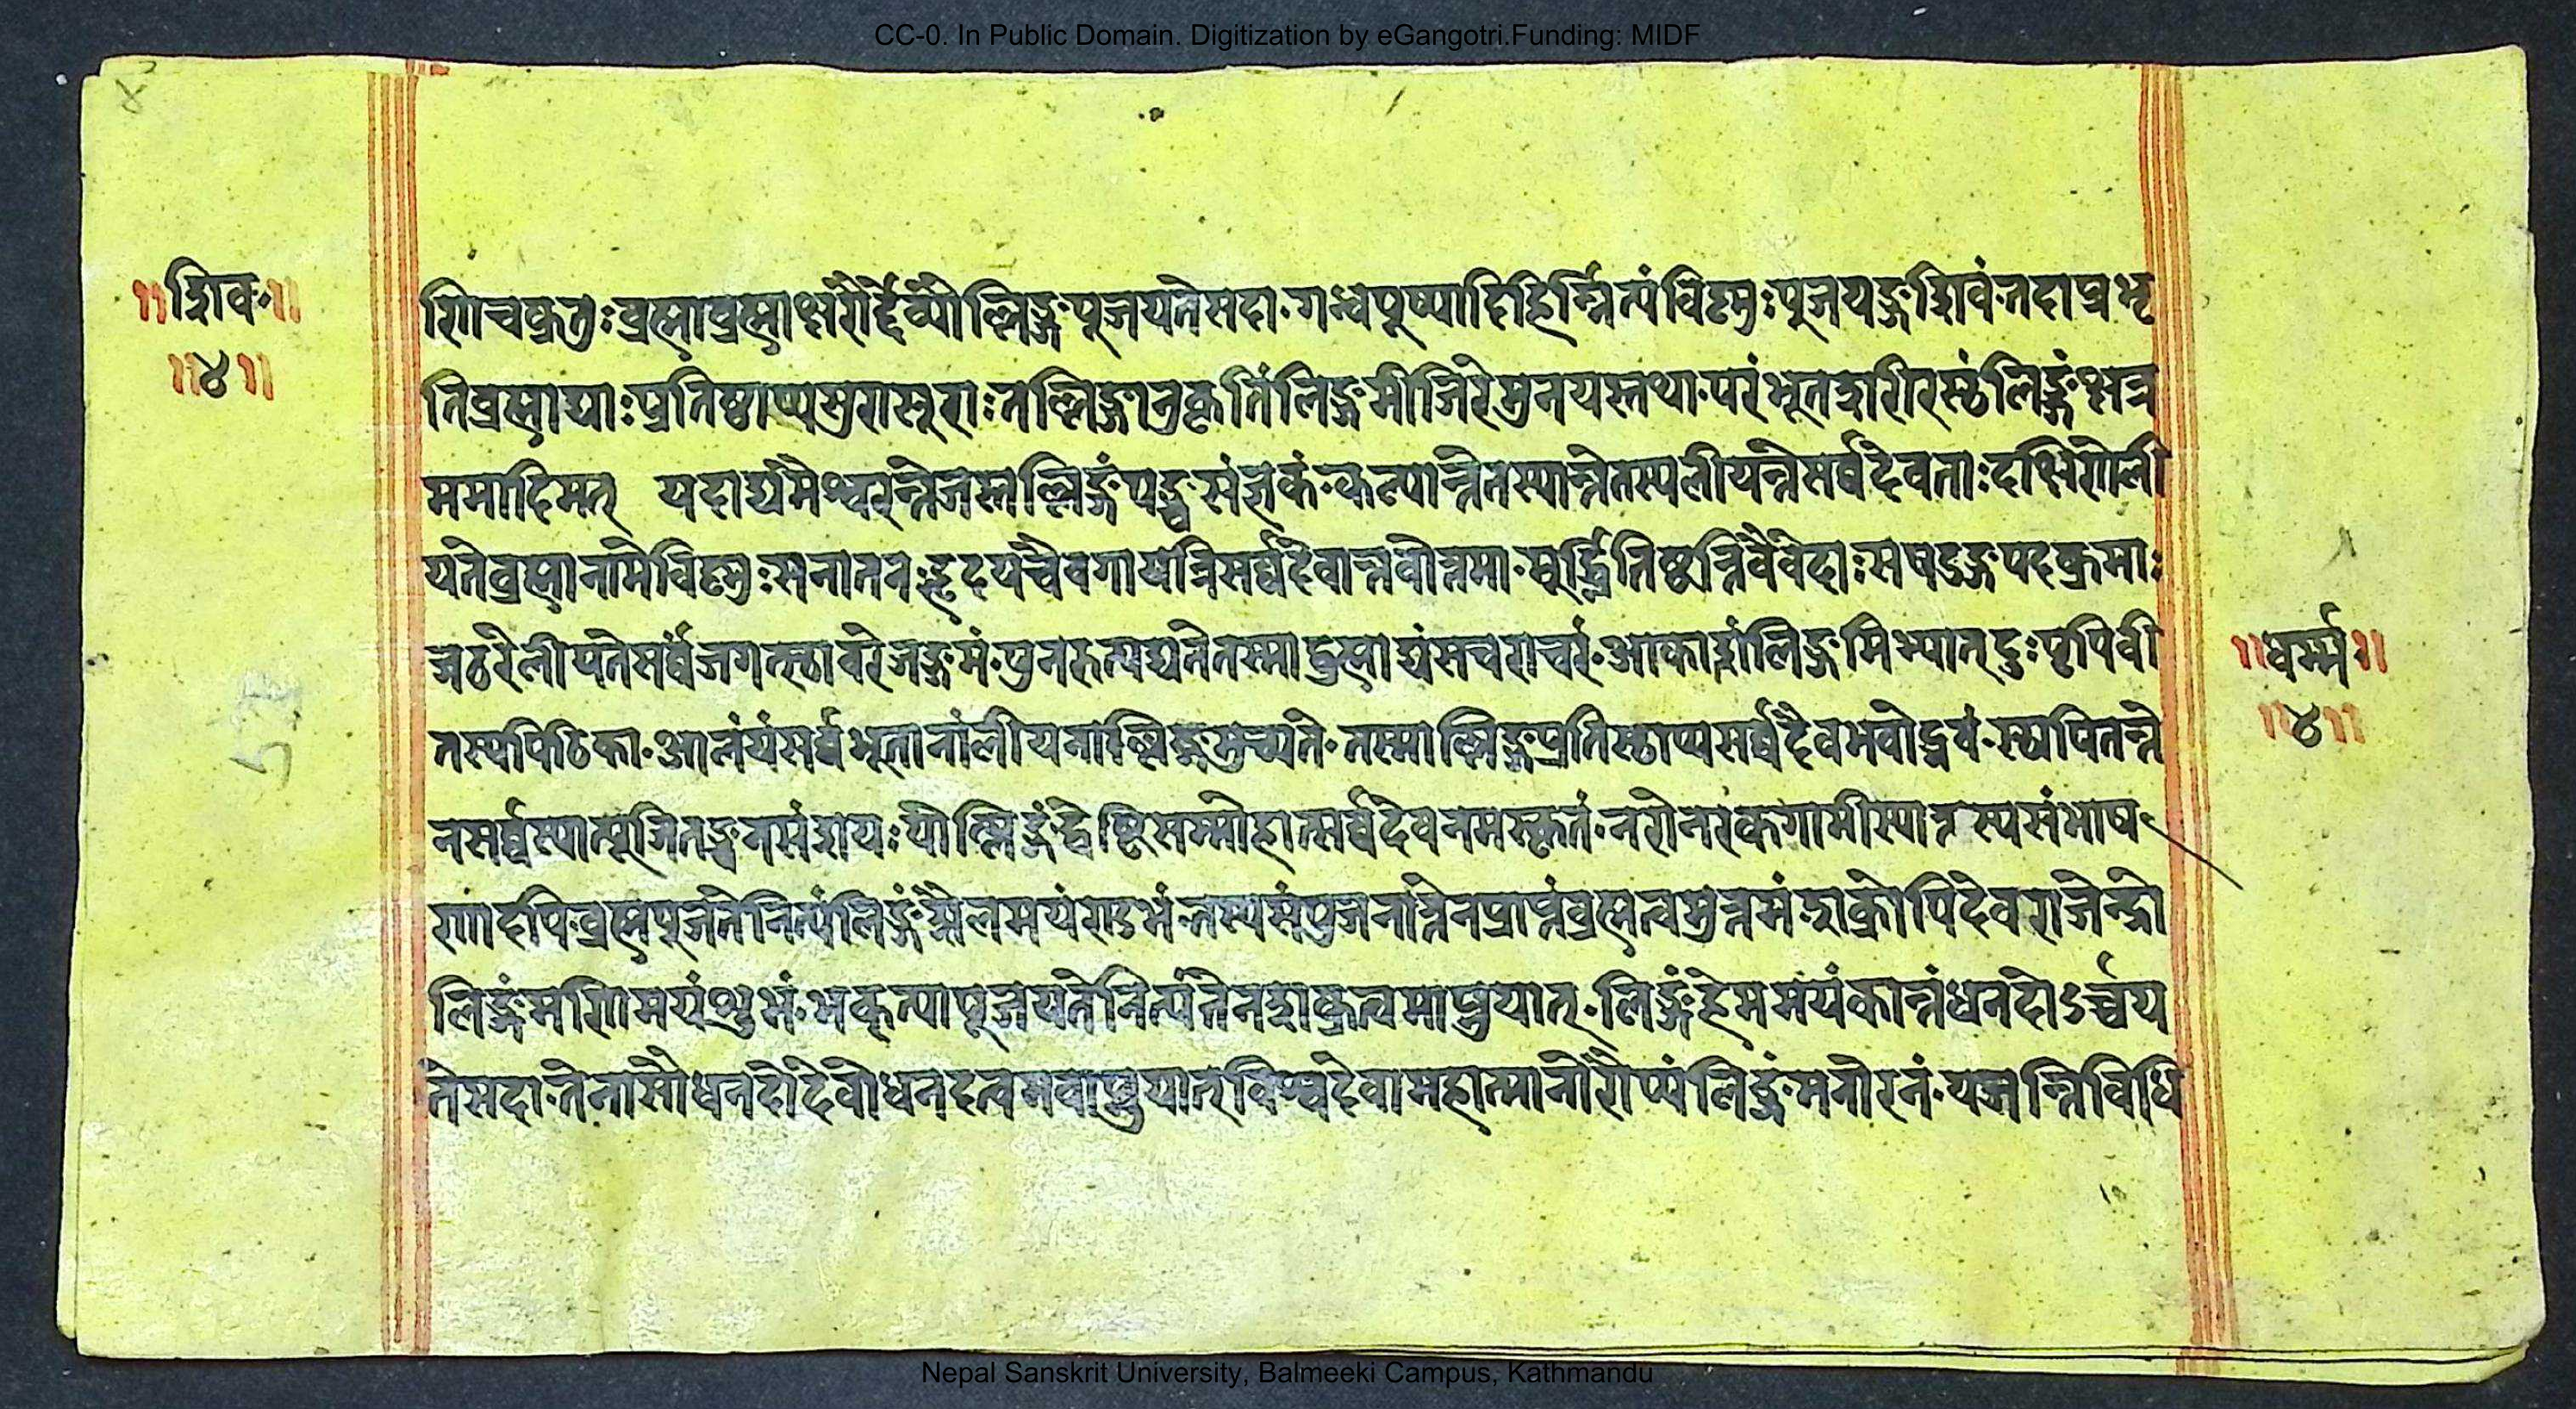 CC-0. In Public Domain. Digitization by eGangotri.Funding: MIDF
४
॥शिव॰॥
॥४॥
णिचक्रतुःब्रह्माब्रह्माक्षरैर्द्दैव्यौल्लिङ्गपूजयतेसदा॰गन्धपूष्पादिहिर्न्नित्यंविष्णुःपूजयङ्गशिवंतदाप्रभृ
तिब्रह्माद्याःप्रतिष्ठाप्यसुरासूराःतल्लिङ्गानुकृतिंलिङ्गमीजिरेमुनयस्तथा॰परंभूतशरीरस्ठंलिङ्गंक्षत्र
ममादिमत् यदाद्यमैश्वरन्तेजस्तल्लिङ्गंपञ्चसंज्ञकं॰कल्पान्तेतस्यान्तेतस्यलीयन्तेसर्व्वदेवताःदक्षिणेली
यतेब्रह्मानामेविष्णुःसनातनःहृदयंचैवगायत्रिसर्व्वदेवान्नवोत्तमा॰मुर्द्ध्नितिष्ठन्तिवैवेदाःसषडङ्गपदक्रमाः
जठरेलीयतेसर्व्वंजगत्स्ठावरेजङ्गमं॰पुनरुत्पद्यतेतस्माद्ब्रह्माद्यंसचराचरं॰आकाशंलिङ्गमिभ्यातदुःपृथिवी
तस्यपिठिका॰आलंयंसर्व्वभूतानांलीयनाल्लिङ्गमुच्यते॰तस्माल्लिङ्गप्रतिस्ठाप्यसर्व्वदैवभवोद्भवं॰स्थापितन्ते
नसर्व्वस्यात्पूजितञ्चनसंशयःयोल्लिङ्गंद्वेष्टिसम्मोहात्सर्व्वदेवनमस्कृतं॰नरोनरकगामीस्यात्तस्यसंभाष
णादपि॰ब्रह्मपूजतेनित्यंलिङ्गंशैलमयंशुभंतस्यसंपुजनात्तेनप्राप्तंब्रह्मत्वमुत्तमंशक्रोपिदेवराजेन्द्रो
लिङ्गंमणिमयंशुभं॰भक्त्यापूजयतेनित्यंतेनशक्रत्वमाप्नुयात्॰लिङ्गंहेममयंकान्तंधनदोऽर्च्चय
तेसदा॰तेनासौधनदोदेवोधनदत्वमवाप्नुयात्विश्वदेवामहात्मानोरौप्यंलिङ्गंमनोरनं॰यजन्तिविधि
॥धर्म्म॰॥
॥४॥
Nepal Sanskrit University, Balmeeki Campus, Kathmandu